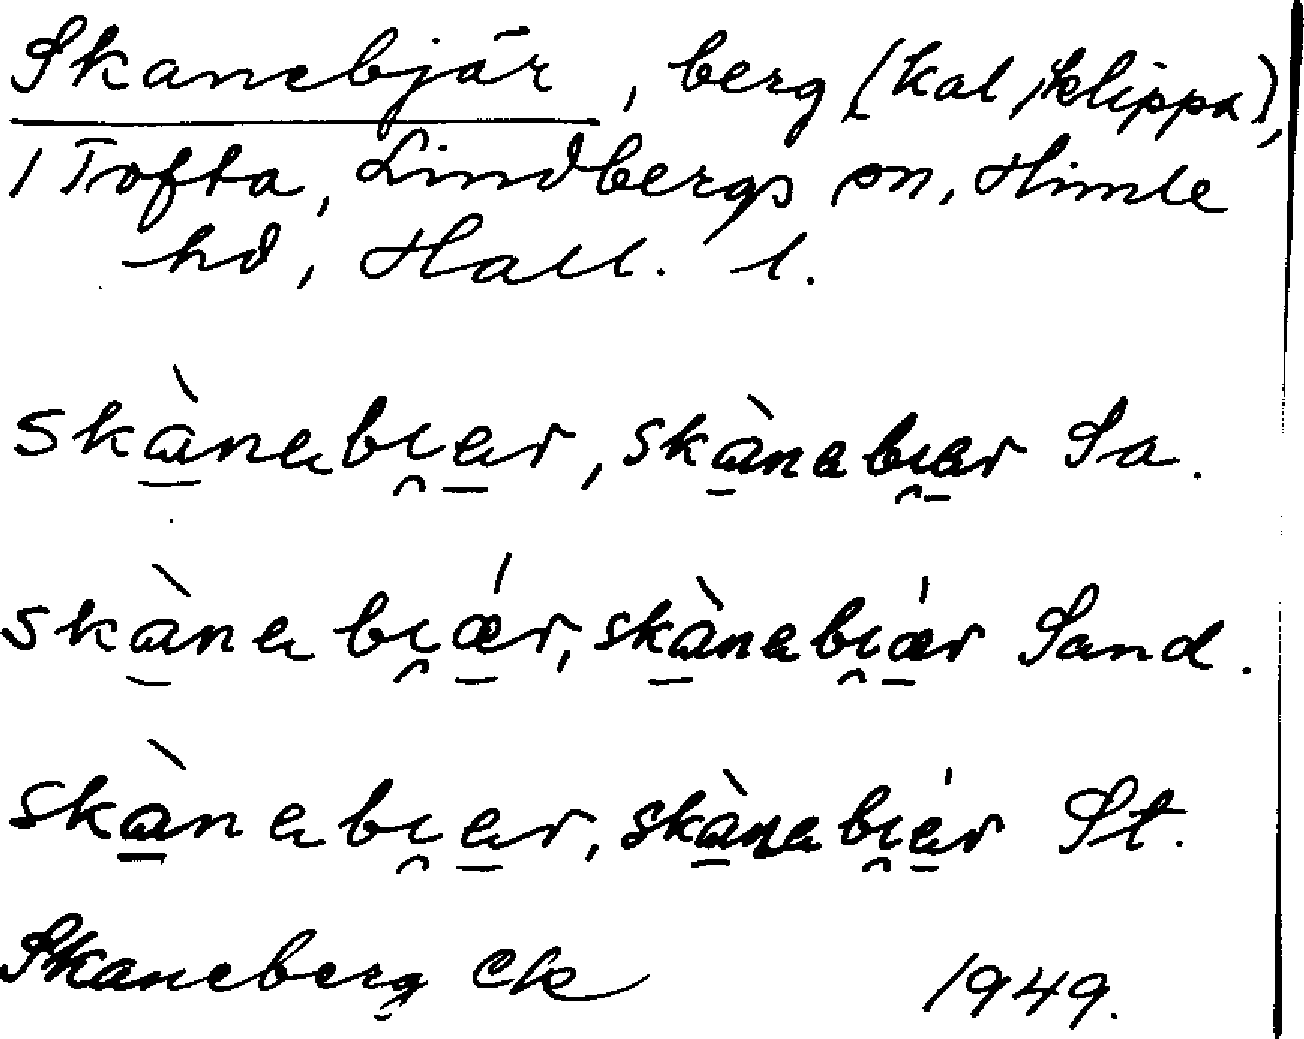 Skanebjär, berg (kal klippa),
i Tofta, Lindbergs sn, Himle
hd, Hall. l.
skànabi̯ær, skànabi̯ær Sa.
skànabi̯ǽr, skànabi̯ǽr Sand.
skànabi̯ær, skànabi̯ǽr St.
Skaneberg Ek 1949.